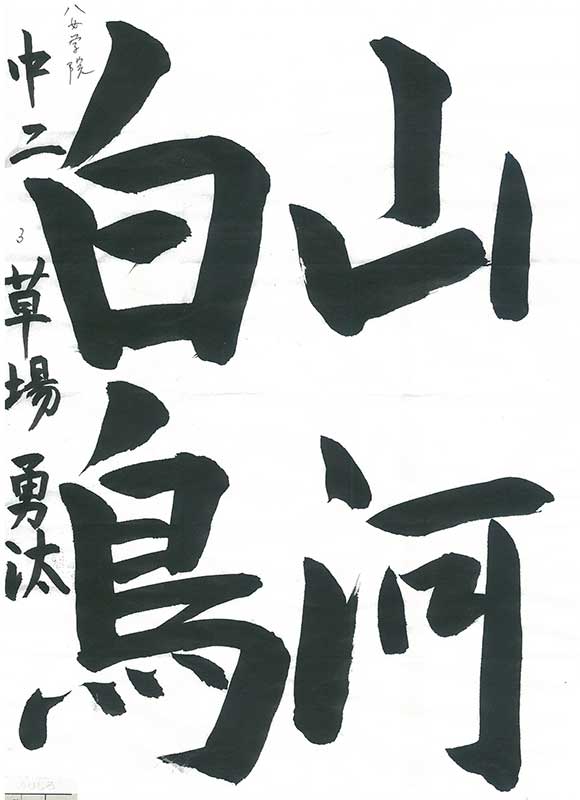 山河
白鳥
八女学院
中二
3
草場勇汰